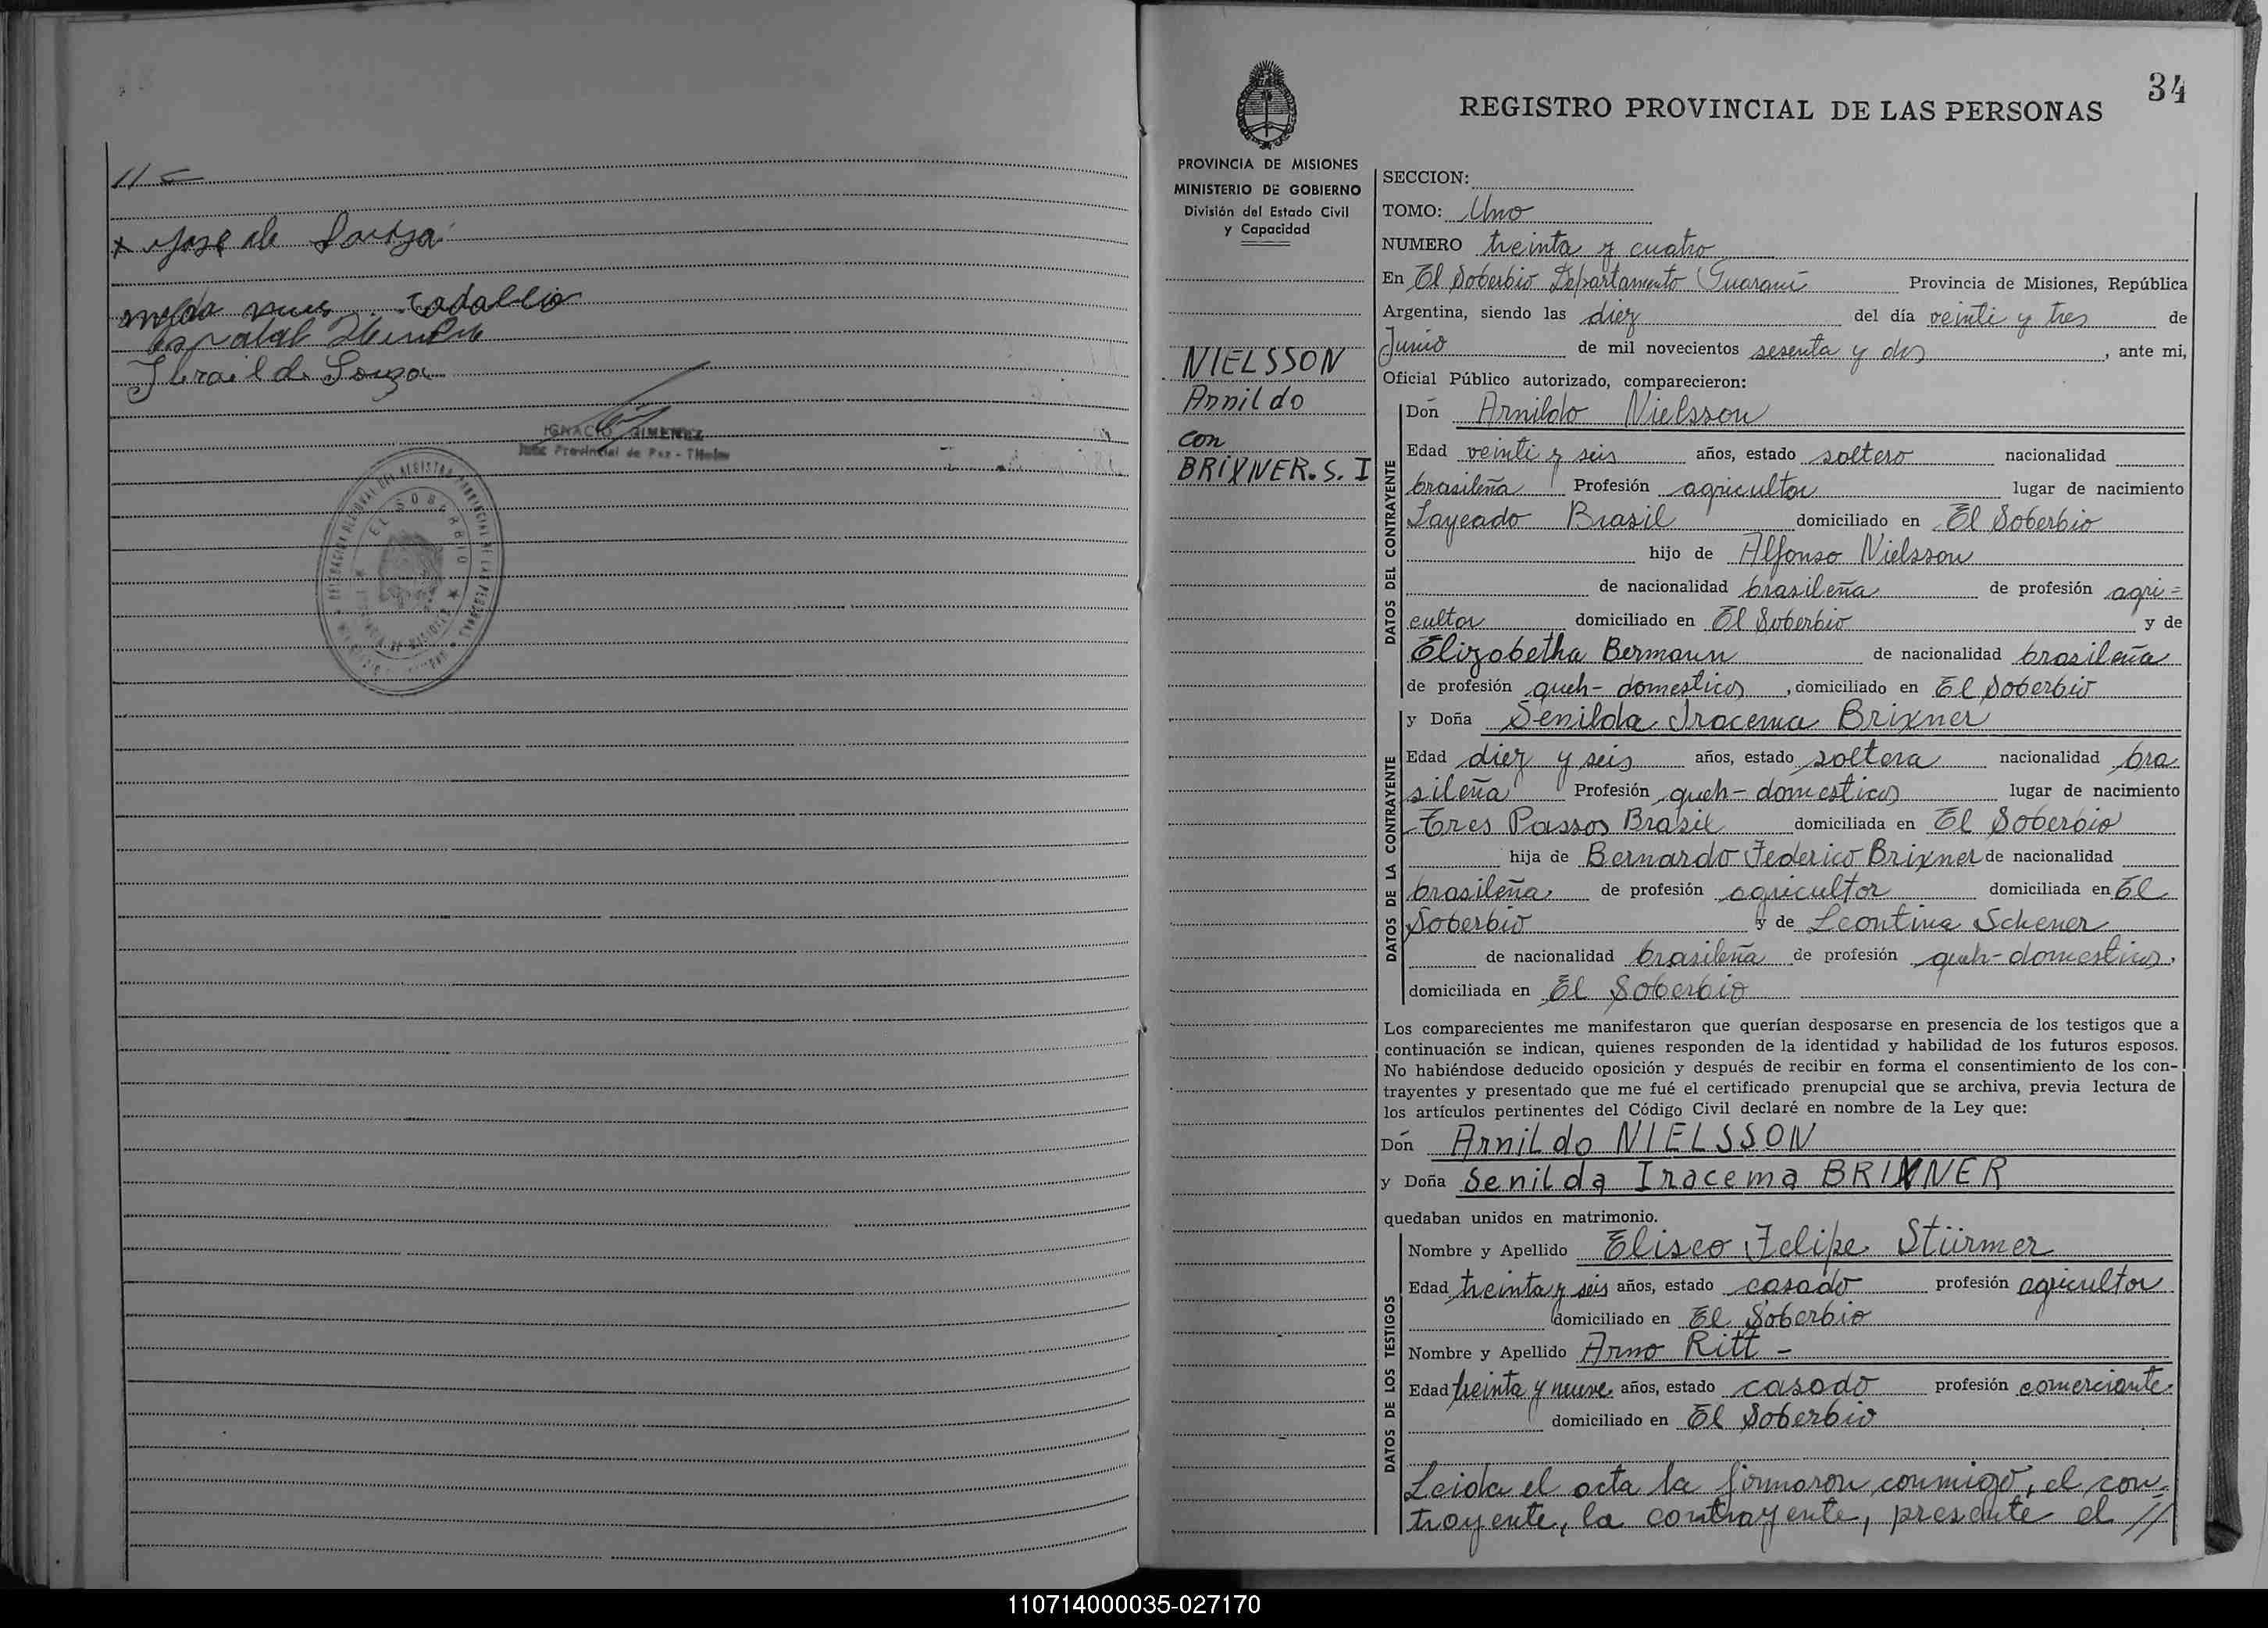 x Jose de Souza
Israil de Souza
IGNACIO GIMENEZ
Juez Provincial de Paz - Titular
EL SOBERBIO
34
REGISTRO PROVINCIAL DE LAS PERSONAS
PROVINCIA DE MISIONES
MINISTERIO DE GOBIERNO
División del Estado Civil
y Capacidad
NIELSSON
Arnildo
con
BRIXNER. S. I
SECCION:
TOMO: Uno
NUMERO treinta y cuatro
En El Soberbio Departamento Guaraní Provincia de Misiones, República
Argentina, siendo las diez del día veinti y tres de
Junio de mil novecientos sesenta y dos, ante mi,
Oficial Público autorizado, comparecieron:
DATOS DEL CONTRAYENTE
Don Arnildo Nielsson
Edad veinti y seis años, estado soltero nacionalidad
brasileña Profesión agricultor lugar de nacimiento
Layeado Brasil domiciliado en El Soberbio
hijo de Alfonso Nielsson
de nacionalidad brasileña de profesión agri=
cultor domiciliado en El Soberbio y de
Elizabetha Bermann de nacionalidad brasileña
de profesión queh-domesticos, domiciliado en El Soberbio
DATOS DE LA CONTRAYENTE
y Doña Senilda Iracema Brixner
Edad diez y seis años, estado soltera nacionalidad bra
sileña Profesión queh-domesticos lugar de nacimiento
Tres Passos Brasil domiciliada en El Soberbio
hija de Bernardo Federico Brixner de nacionalidad
brasileña de profesión agricultor domiciliada en El
Soberbio y de Leontina Schener
de nacionalidad brasileña de profesión queh-domesticos,
domiciliada en El Soberbio
Los comparecientes me manifestaron que querían desposarse en presencia de los testigos que a
continuación se indican, quienes responden de la identidad y habilidad de los futuros esposos.
No habiéndose deducido oposición y después de recibir en forma el consentimiento de los con-
trayentes y presentado que me fué el certificado prenupcial que se archiva, previa lectura de
los artículos pertinentes del Código Civil declaré en nombre de la Ley que:
Don Arnildo NIELSSON
y Doña Senilda Iracema BRIXNER
quedaban unidos en matrimonio.
DATOS DE LOS TESTIGOS
Nombre y Apellido Eliseo Felipe Stürmer
Edad treinta y seis años, estado casado profesión agricultor
domiciliado en El Soberbio
Nombre y Apellido Arno Ritt -
Edad treinta y nueve años, estado casado profesión comerciante
domiciliado en El Soberbio
Leida el acta la firmaron conmigo, el con=
trayente, la contrayente, presente el //
110714000035-027170